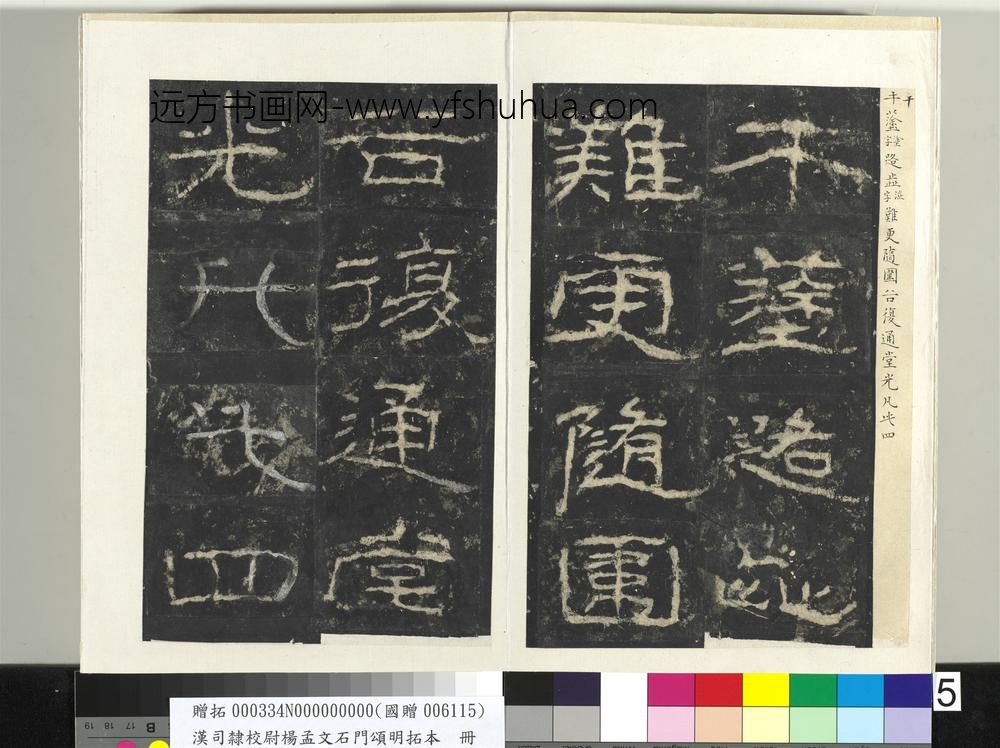 远方书画网-www.yfshuhua.com
難更隨圍谷復通堂光凡此四
午塗路歰
難更隨圍
谷復通堂
光凡此四
贈拓 000334N000000000(國贈 006115)
漢司隸校尉楊孟文石門頌明拓本 冊
5
19 18 17
B